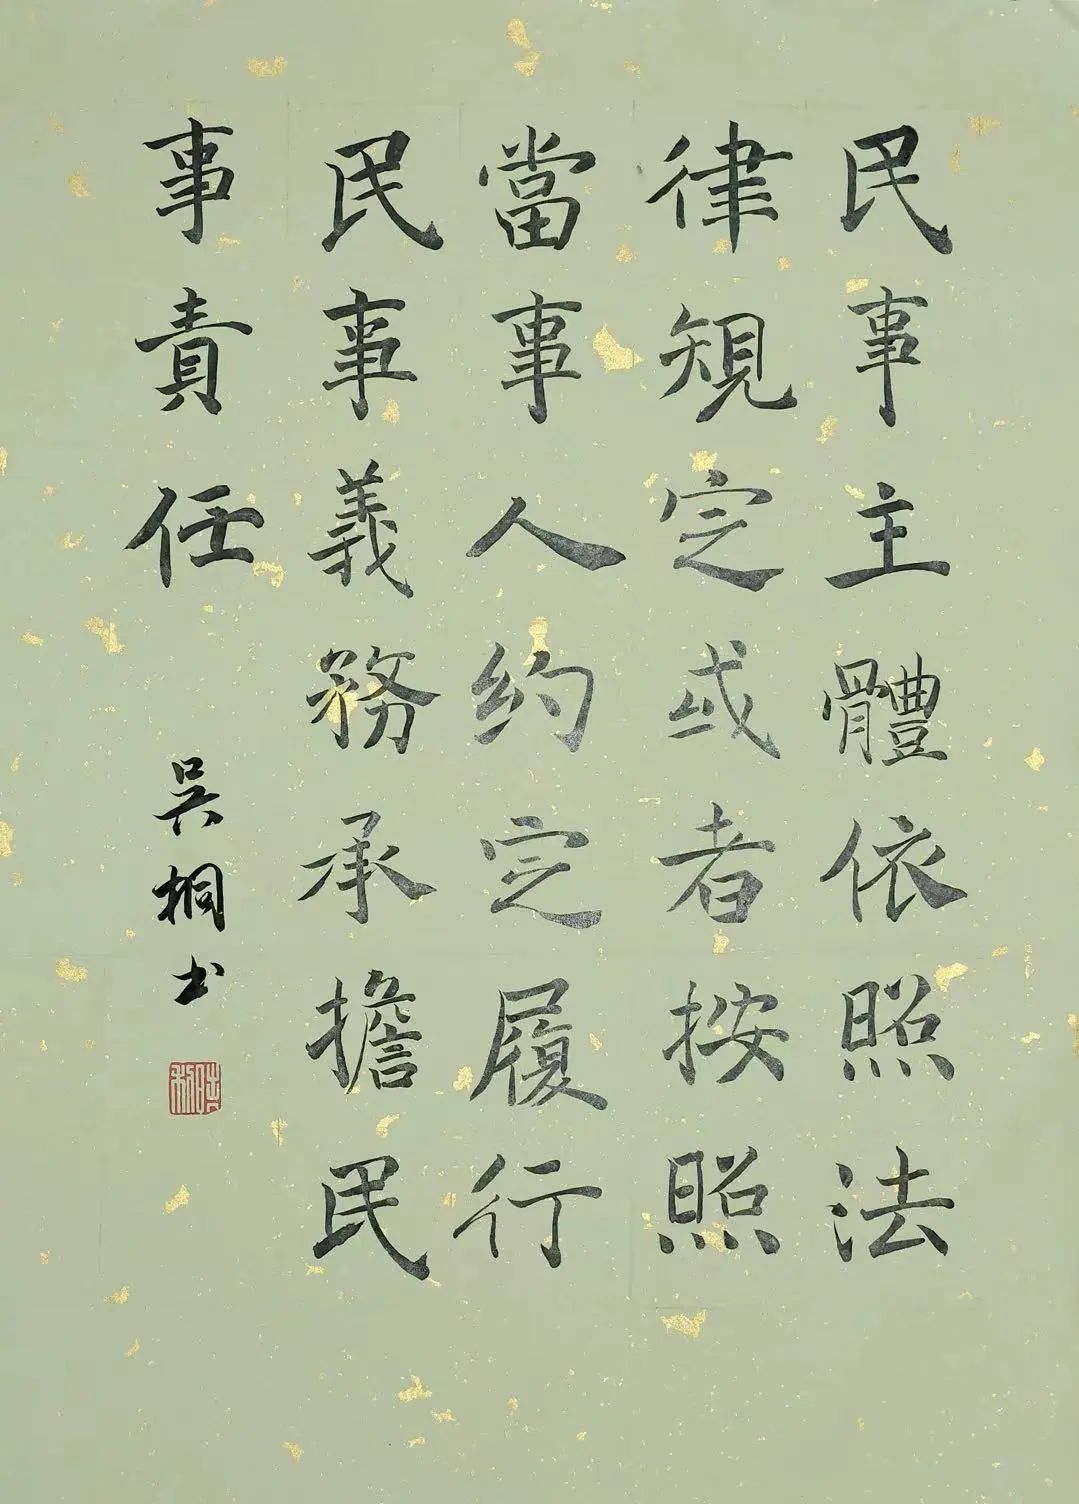 民事主體依照法
律規定或者按照
當事人約定履行
民事義務承擔民
事責任
吳桐書